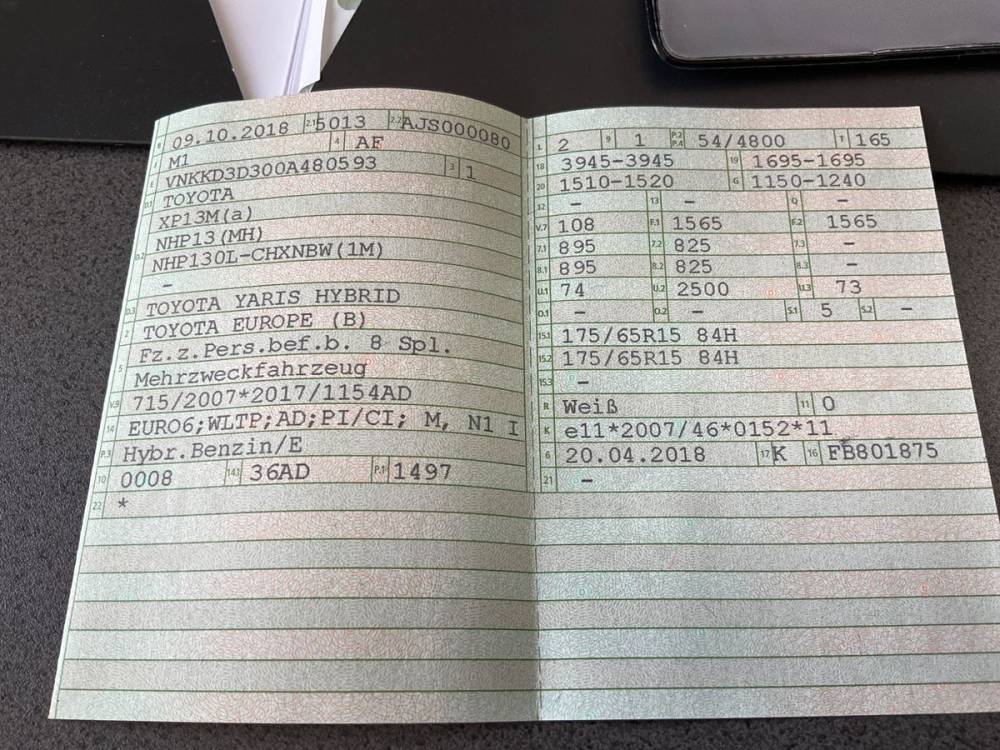 B 09.10.2018 2.1 5013 2.2 AJS000080
J M1 4 AF
E VNKKD3D300A480593 3 1
D.1 TOYOTA
XP13M(a)
D.2 NHP13(MH)
NHP130L-CHXNBW(1M)
-
D.3 TOYOTA YARIS HYBRID
2 TOYOTA EUROPE (B)
5 Fz.z.Pers.bef.b. 8 Spl.
Mehrzweckfahrzeug
V.9 715/2007*2017/1154AD
14 EURO6;WLTP;AD;PI/CI; M, N1 I
P.3 Hybr.Benzin/E
10 0008 14.1 36AD P.1 1497
22 *
L 2 9 1 P.2 P.4 54/4800 T 165
18 3945-3945 19 1695-1695
20 1510-1520 G 1150-1240
12 - 13 - Q -
V.7 108 F.1 1565 F.2 1565
7.1 895 7.2 825 7.3 -
8.1 895 8.2 825 8.3 -
U.1 74 U.2 2500 U.3 73
O.1 - O.2 - S.1 5 S.2 -
15.1 175/65R15 84H
15.2 175/65R15 84H
15.3 -
R Weiß 11 0
K e11*2007/46*0152*11
6 20.04.2018 17 K 16 FB801875
21 -